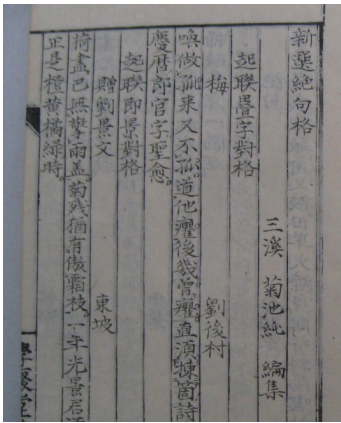 新選絶句格
三溪　菊池純　編集
起聯疊字對格
梅　劉後村
喚做孤来又不孤。道他癯後幾曾癯。直須揀箇詩
慶曆郎官字聖愈。
起聯即景對格
贈劉景文　東坡
荷盡已無擎雨蓋。菊殘猶有傲霜枝。一年光景君
正是橙黄橘緑時。